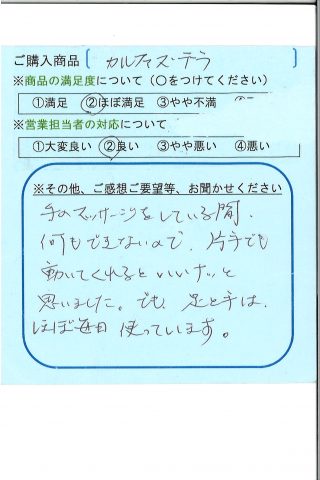 ご購入商品 〔 カルフィズ・テラ 〕
※商品の満足度について（○をつけてください）
①満足 ②ほぼ満足 ③やや不満
※営業担当者の対応について
①大変良い ②良い ③やや悪い ④悪い
※その他、ご感想ご要望等、お聞かせください
手のマッサージをしている間、
何もできないので、片手でも
動いてくれるといいナッと
思いました。でも、足と手は、
ほぼ毎日 使っています。